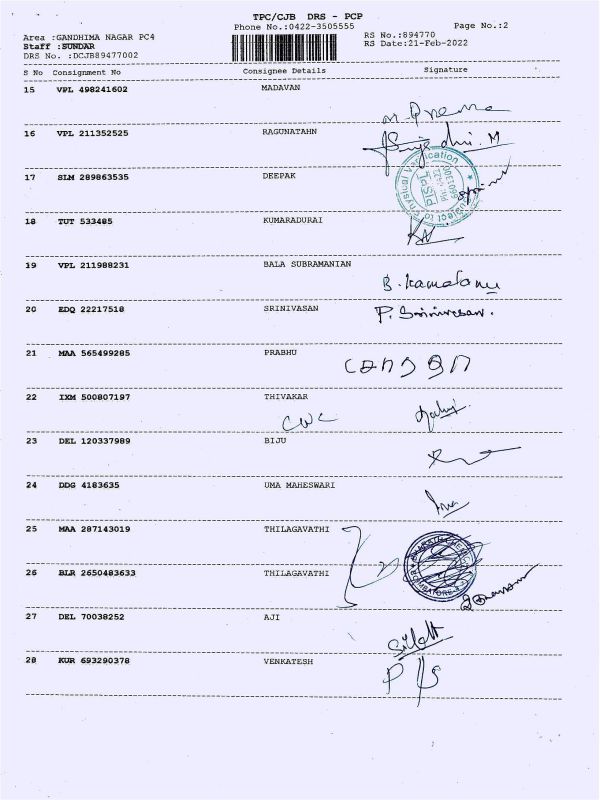 TPC/CJB DRS - PCP
Phone No.:0422-3505555
Page No.:2
Area :GANDHIMA NAGAR PC4
RS No.:894770
Staff :SUNDAR
RS Date:21-Feb-2022
DRS No. :DCJB89477002
S No Consignment No Consignee Details Signature
15 VPL 498241602 MADAVAN
16 VPL 211352525 RAGUNATAHN
17 SLM 289863535 DEEPAK
18 TUT 533485 KUMARADURAI
19 VPL 211988231 BALA SUBRAMANIAN
20 EDQ 22217518 SRINIVASAN
P. Srinivasan.
21 MAA 565499285 PRABHU
22 IXM 500807197 THIVAKAR
CWC
23 DEL 120337989 BIJU
24 DDG 4183635 UMA MAHESWARI
Uma
25 MAA 287143019 THILAGAVATHI
26 BLR 2650483633 THILAGAVATHI
27 DEL 70038252 AJI
28 KUR 693290378 VENKATESH